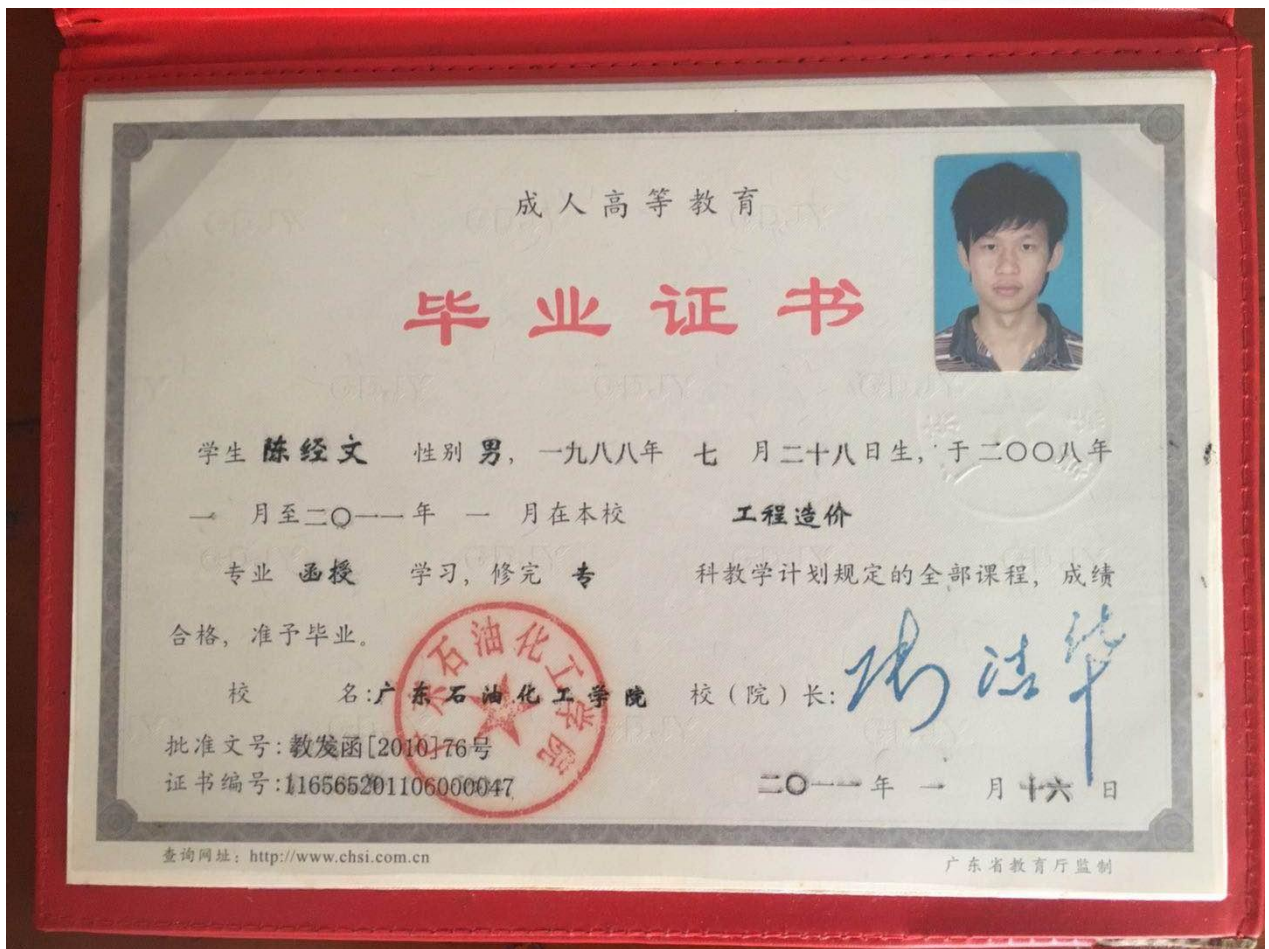 成人高等教育
毕业证书
学生 陈经文 性别 男，一九八八年 七 月二十八日生，于二〇〇八年
一 月至二〇一一年 一 月在本校 工程造价
专业 函授 学习，修完 专 科教学计划规定的全部课程，成绩
合格，准予毕业。
校 名：广东石油化工学院 校（院）长：
石油化工学院
批准文号：教发函[2010]76号
证书编号：116565201106000047
二〇一一年 一 月 十六 日
查询网址：http://www.chsi.com.cn
广东省教育厅监制